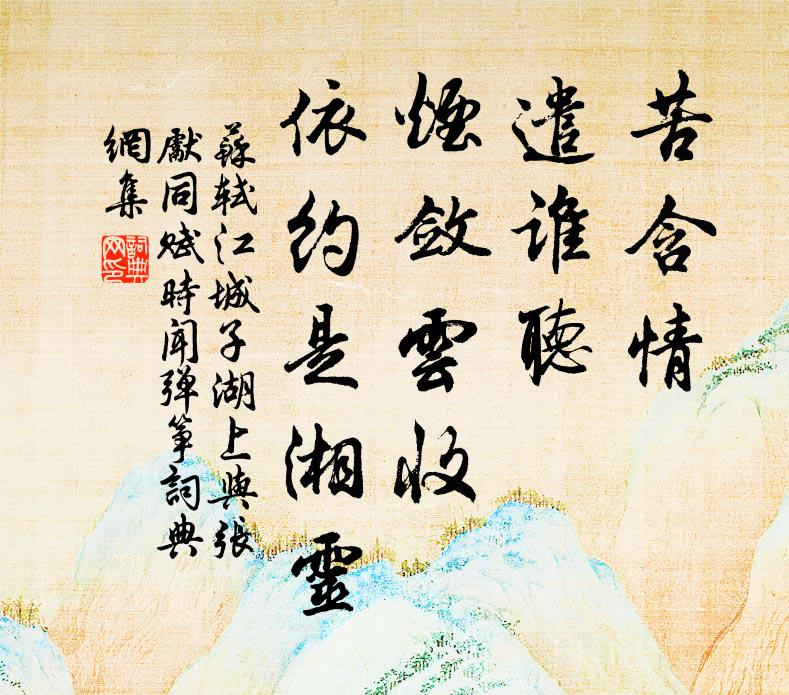 苦含情
遣誰聽
煙斂雲收
依約是湘靈
蘇軾江城子湖上與張
獻同賦時闻弹箏詞典
網集
詞典网印